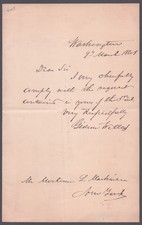 Washington
9th March 1861
Dear Sir
I very cheerfully
comply with the request
contained in yours of the 5th
Very respectfully
Gideon Welles
Mr.
New York